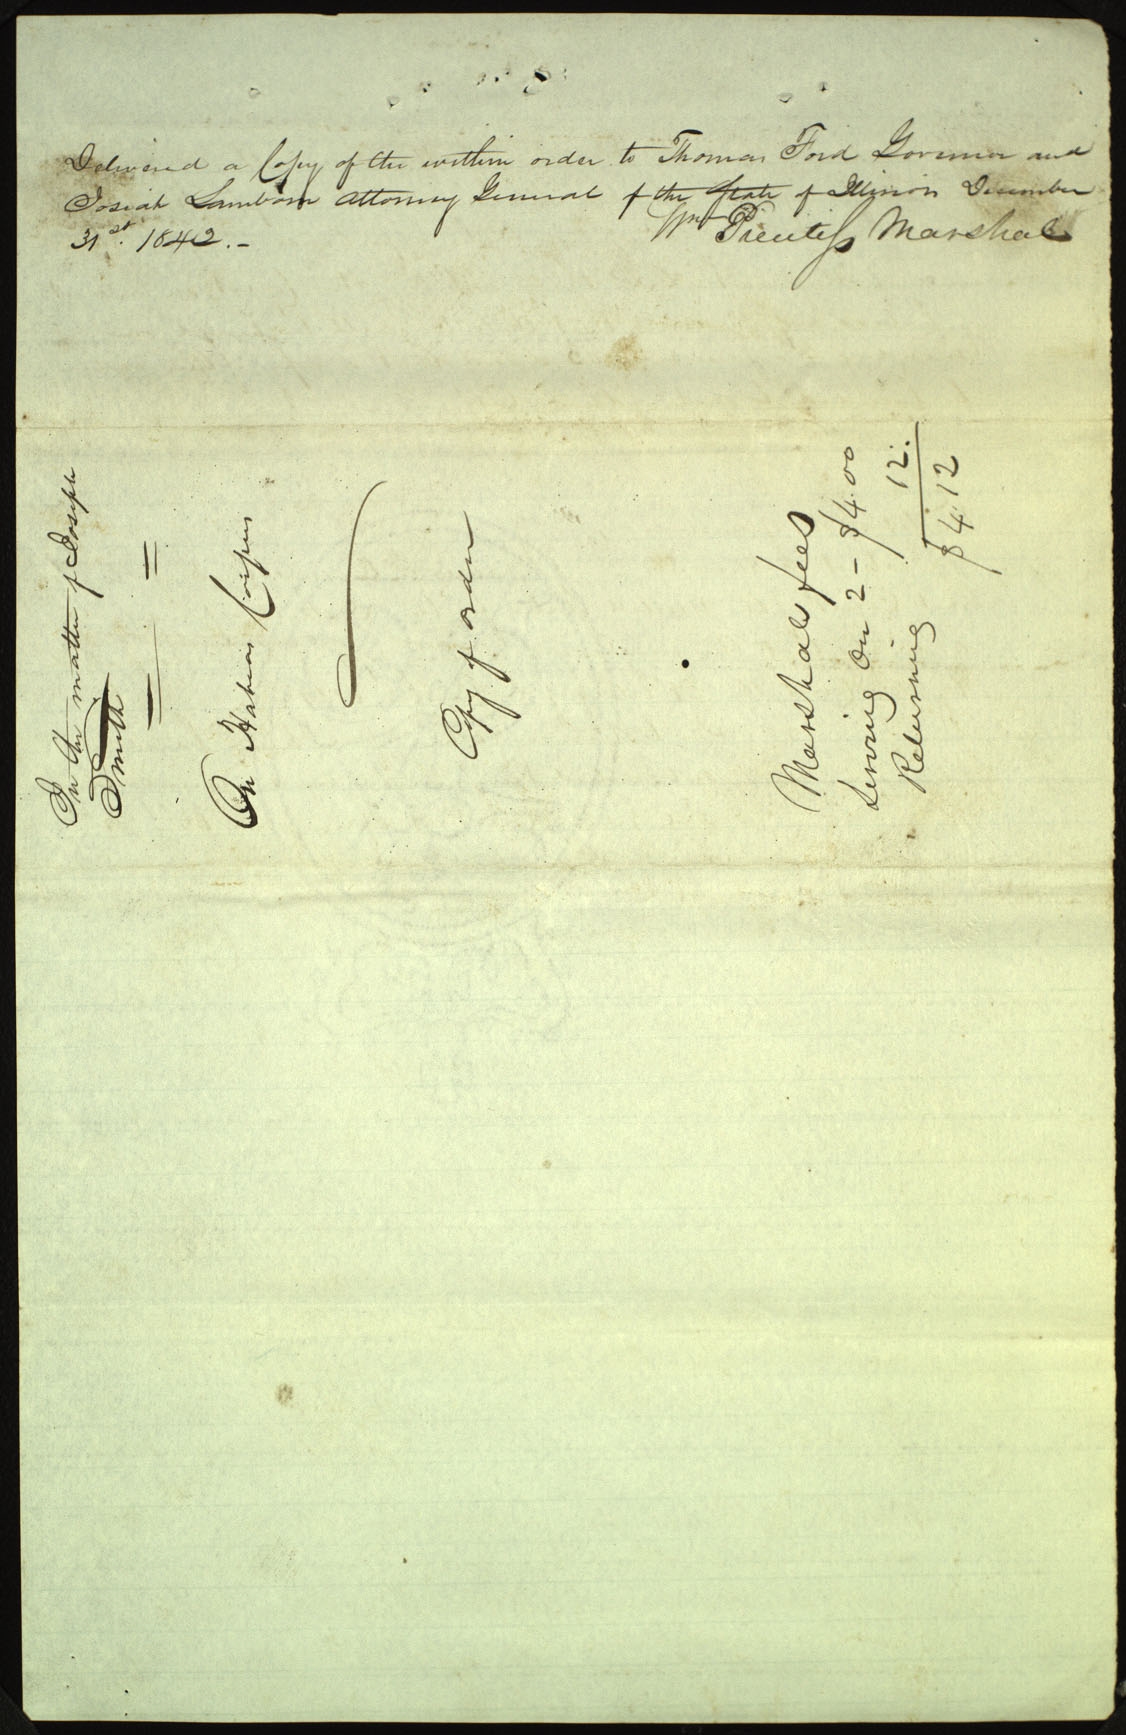 Delivered a Copy of the within order to Thomas Ford Governor and
Josiah Lamborn Attorney General of the State of Illinois December
31st. 1842.-
Wm Prentiss Marshal
In the matter of Joseph
Smith
On Habeas Corpus
Copy of order
Marshals fees
Serving on 2 - $4.00
Returning 12.
$4.12